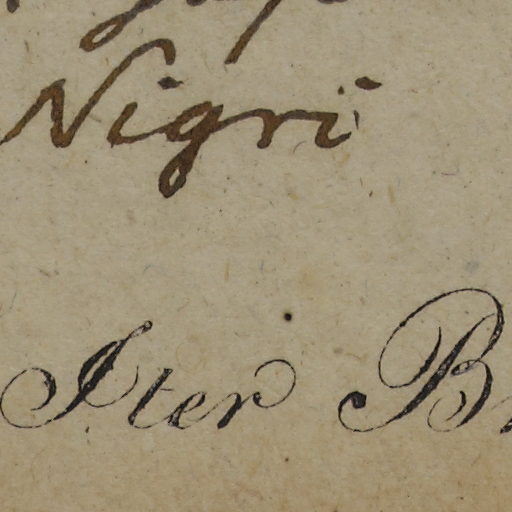 Nigri
Iter